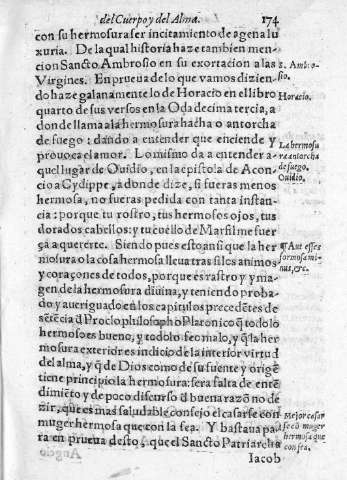 del Cuerpo y del Alma.
174
con su hermosura ser incitamiento de agena lu
xuria. De la qual historia haze tambien men-
cion Sancto Ambrosio en su exortacion a las
S. Ambro-
sio.
Virgines. En prueua de lo que vamos dizien-
do haze galanamente lo de Horacio en el libro
Horacio.
quarto de sus versos en la Oda decima tercia, a
donde llama a la hermosura hacha o antorcha
de fuego: dando a entender que enciende y
La hermosu
prouoca el amor. Lo mismo da a entender a-
ra antorcha
de fuego.
quel lugar de Ouidio, en la epistola de Acon-
Ouidio.
cio a Cydippe, a donde dize, si fueras menos
hermosa, no fueras pedida con tanta instan-
cia: porque tu rostro, tus hermosos ojos, tus
dorados cabellos: y tu cuello de Marfil me fuer
ça a quererte. Siendo pues esto ansi que la her
¶ Aut esses
mosura o la cosa hermosa lleua tras si los animos
formosa mi-
nus, &c.
y coraçones de todos, porque es rastro y yma-
gen de la hermosura diuina, y teniendo proba-
do y aueriguado en los capitulos precedētes de
sētēcia đ Proclo philosopho Platonico q̄ todo lo
hermoso es bueno, y todo lo feo malo, y q̄ la her
mosura exterior es indicio de la interior virtud
del alma, y q̄ de Dios como de su fuente y origē
tiene principio la hermosura: sera falta de entē
dimiēto y de poco discurso đ buena razō no de
zir, que es mas saludable consejo el casarse con
Mejor casar
muger hermosa que con la fea. Y bastaua pa-
se cō muger
hermosa que
con fea.
ra en prueua desto, que el Sancto Patriarcha
Iacob